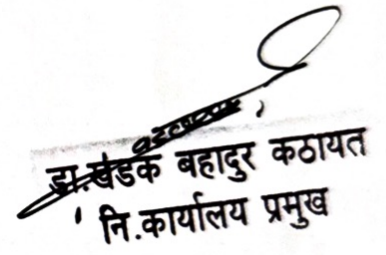 डा.खडक बहादुर कठायत
नि.कार्यालय प्रमुख